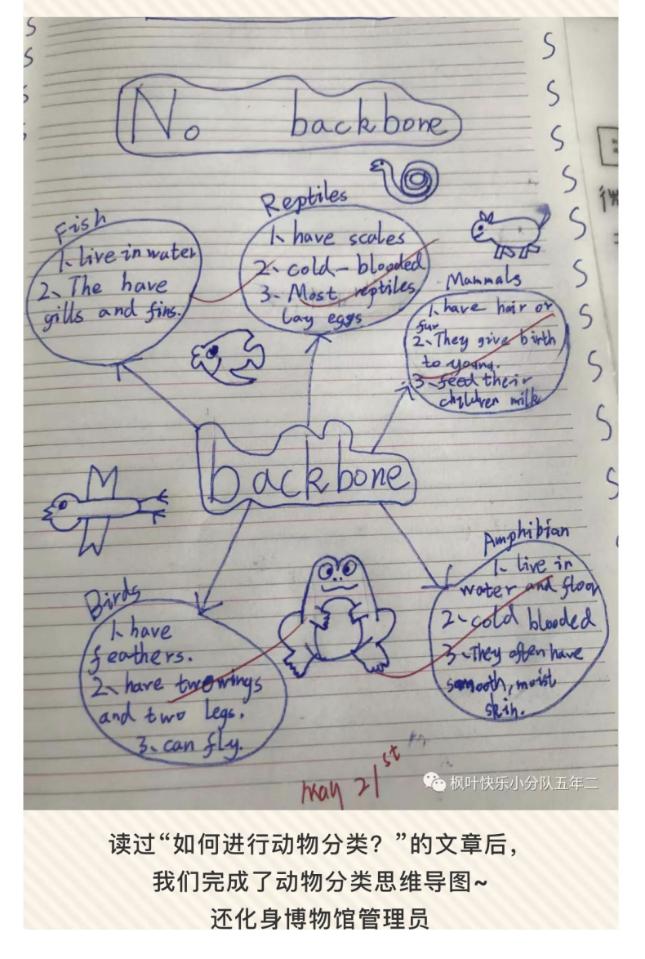 No backbone
Fish
1、live in water
2、The have
gills and fins.
Reptiles
1、have scales
2、cold-blooded
3、Most reptiles
lay eggs
Mammals
1、have hair or
fur
2、They give birth
to young.
3、feed their
children milk
backbone
Birds
1、have
feathers.
2、have two wings
and two legs.
3、can fly.
Amphibian
1、live in
water and floor
2、cold blooded
3、They often have
smooth, moist
skin.
May 21st
枫叶快乐小分队五年二
读过“如何进行动物分类？”的文章后，
我们完成了动物分类思维导图~
还化身博物馆管理员